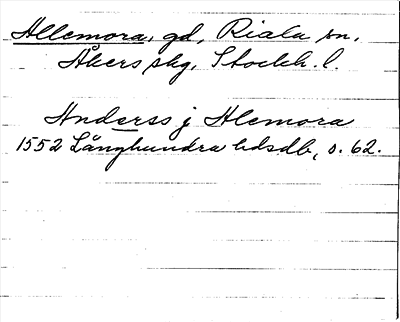 Allemora, gd, Riala sn,
Åkers skg, Stockh. l.
Anderss j Alemora
1552 Långhundra hdsdb, s. 62.